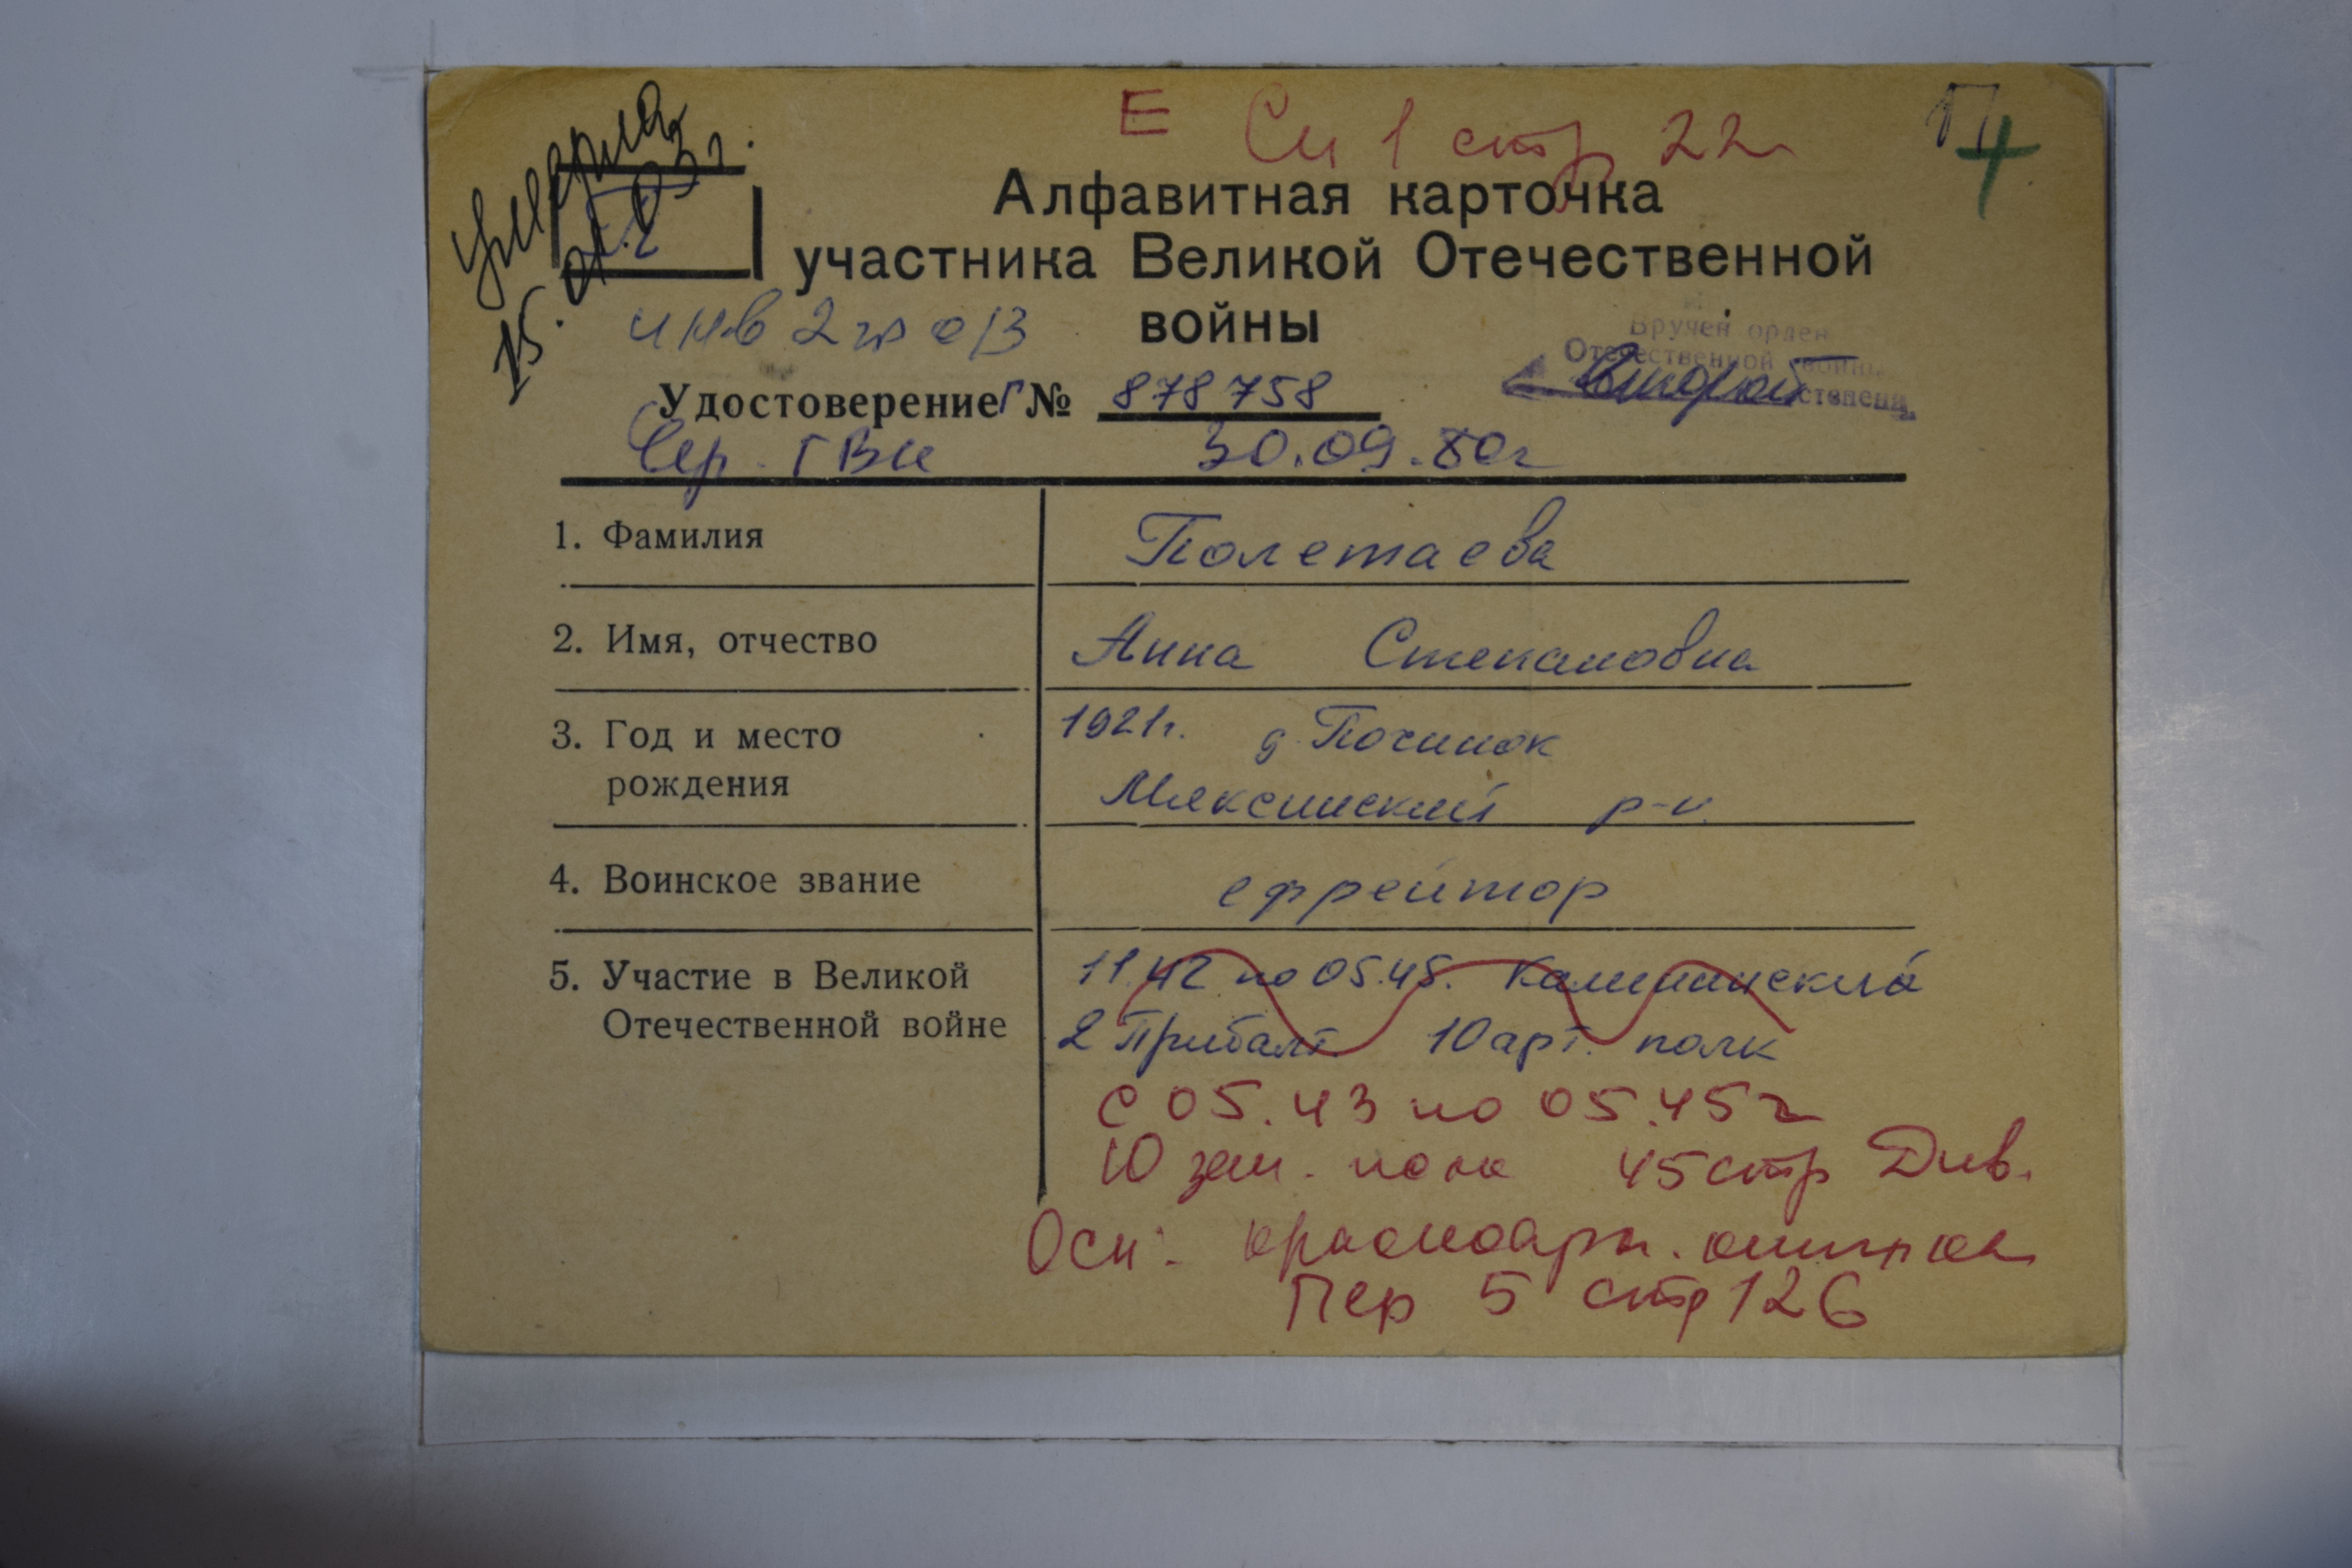 Е Сп 1 стр 22
П
умерла
15.01.03г.
Алфавитная карточка
участника Великой Отечественной
войны
инв 2 гр ОВ
Вручен орден
Отечественной войны
Второй степени
Удостоверение Г № 878758
Сер. ГВ 30.09.80г
1. Фамилия Полетаева
2. Имя, отчество Анна Степановна
3. Год и место 1921г. д. Починок
рождения Мяксинский р-н.
4. Воинское звание ефрейтор
5. Участие в Великой 11.42 по 05.45. Калининский
Отечественной войне 2 Прибалт. 10 арт. полк
с 05.43 по 05.45г
10 зен. полк 45 стр Див.
Осн: красноарм. книжка
Пер 5 стр 126